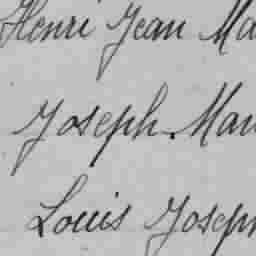 Henri Jean Ma
Joseph Mau
Louis Joseph